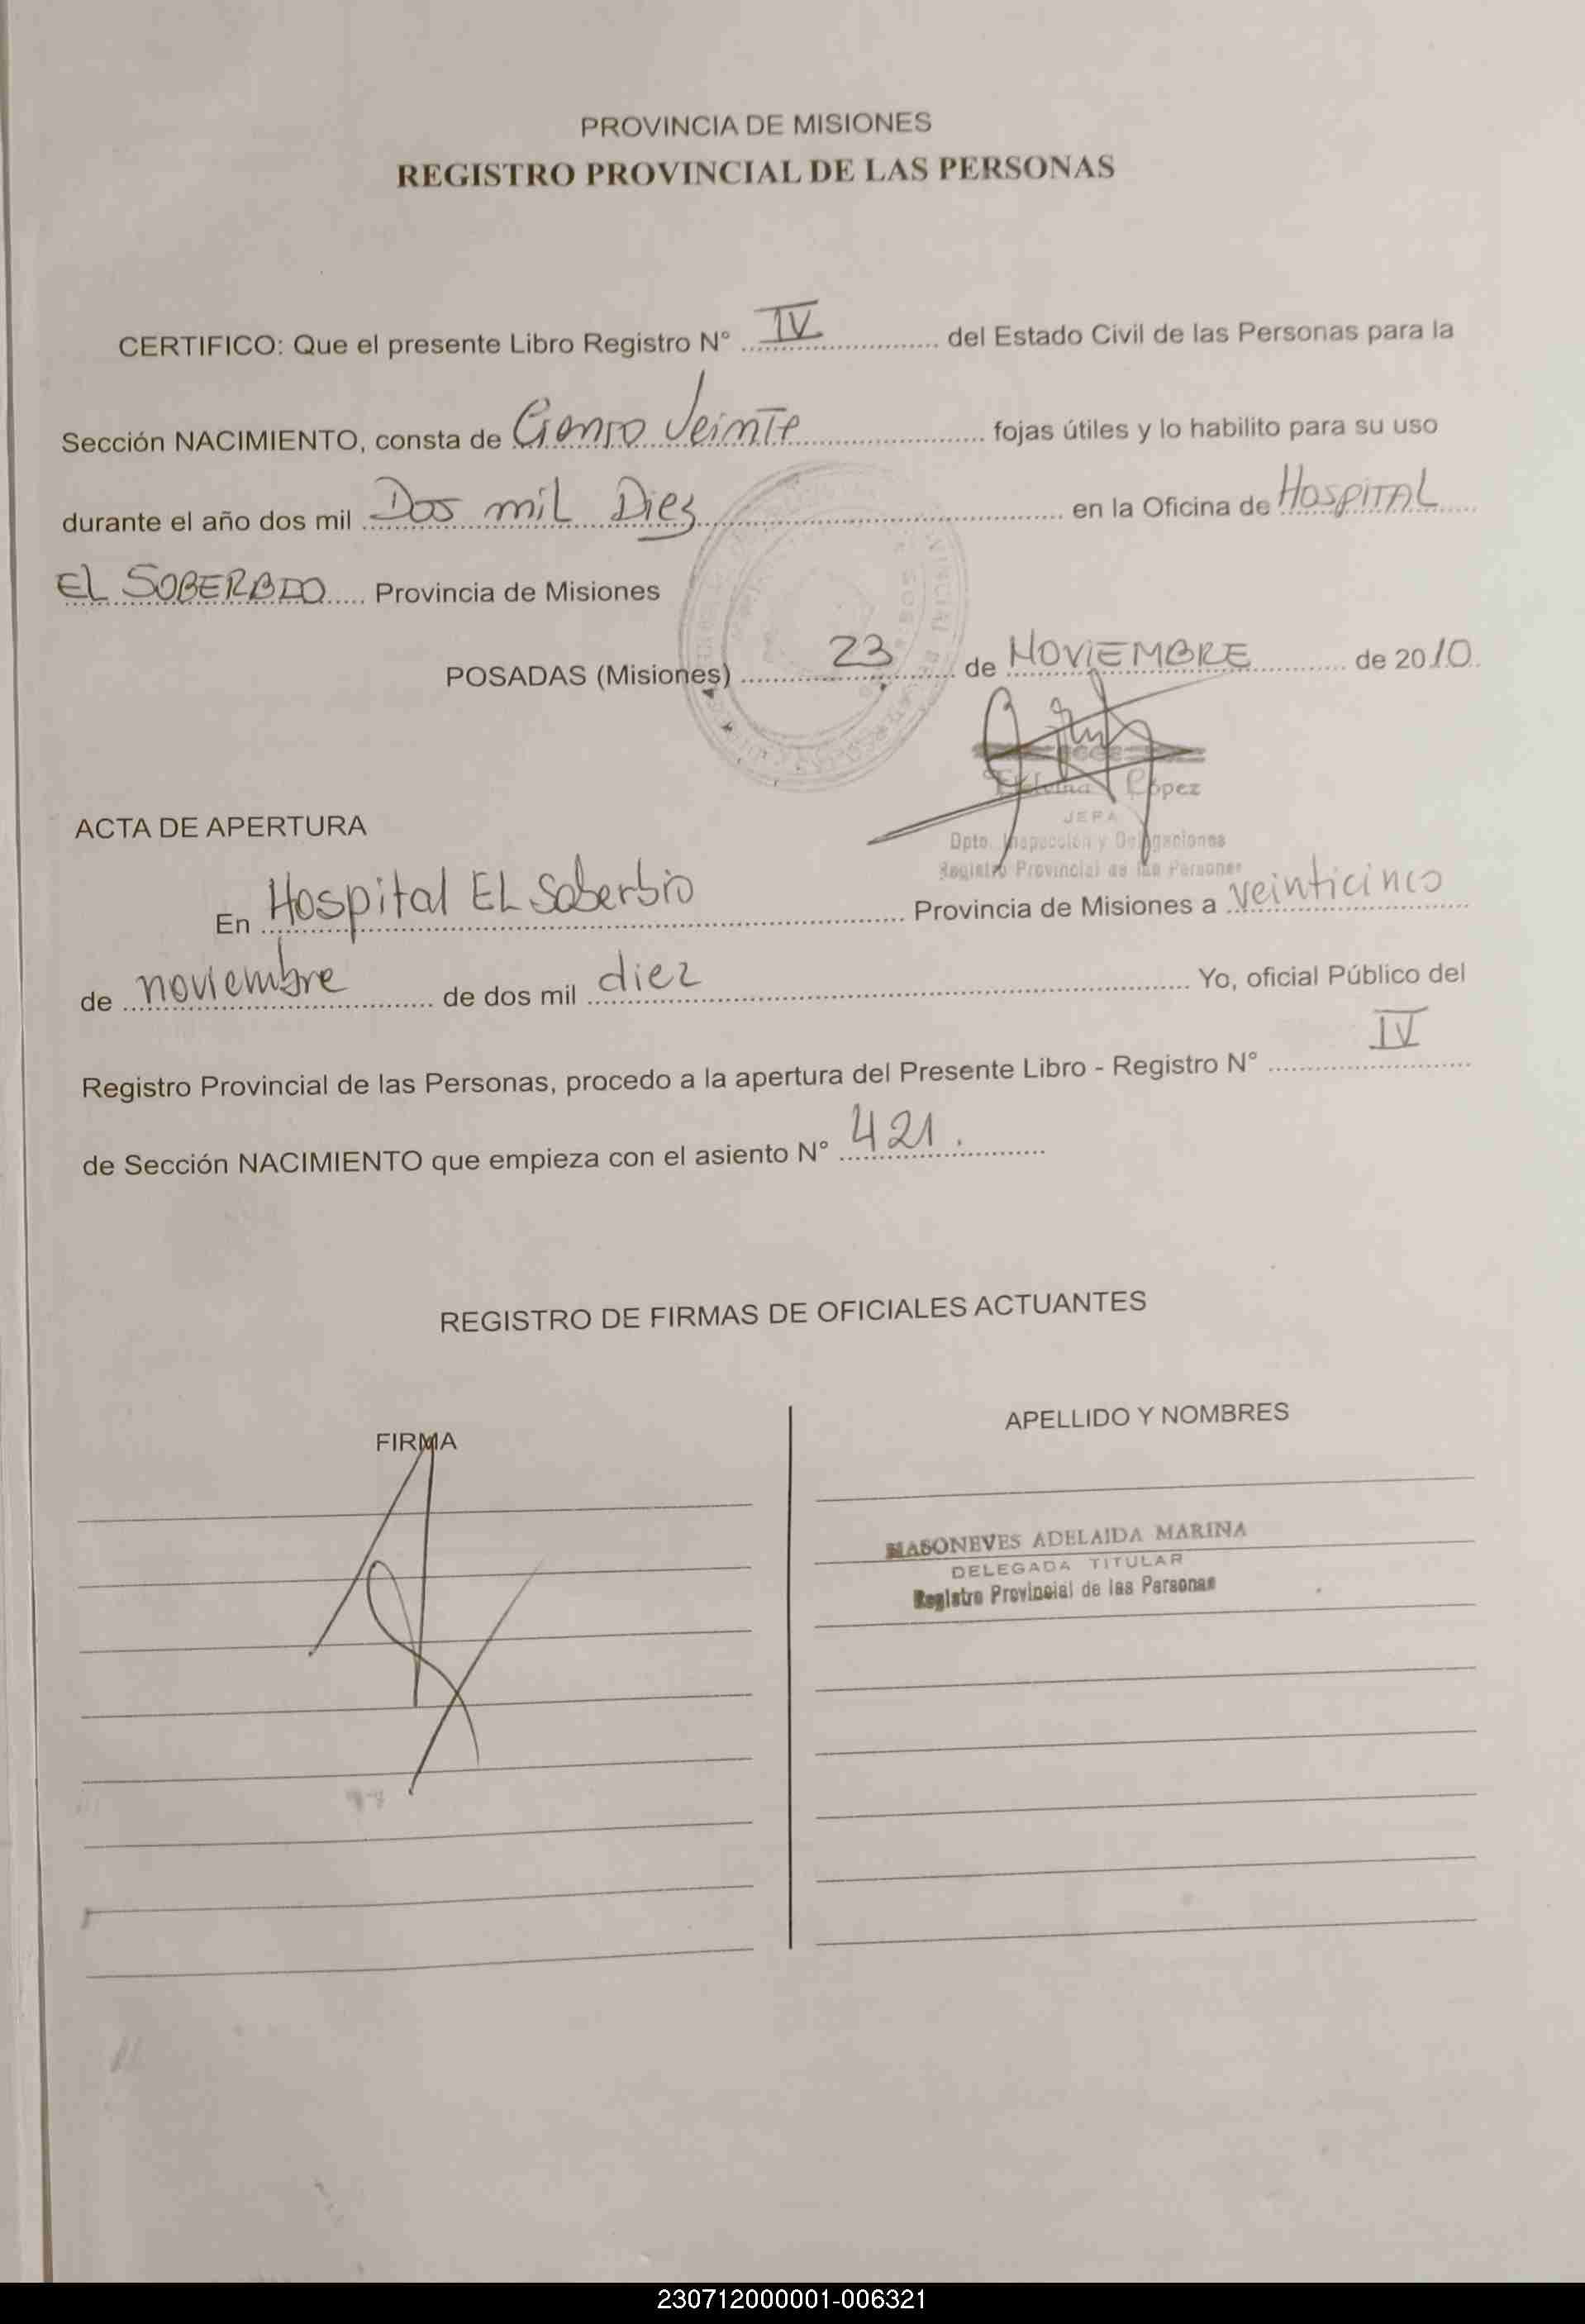 PROVINCIA DE MISIONES
REGISTRO PROVINCIAL DE LAS PERSONAS
CERTIFICO: Que el presente Libro Registro N° IV del Estado Civil de las Personas para la
Sección NACIMIENTO, consta de Ciento Veinte fojas útiles y lo habilito para su uso
durante el año dos mil Dos mil Diez en la Oficina de HOSPITAL
EL SOBERBIO Provincia de Misiones
POSADAS (Misiones) 23 de NOVIEMBRE de 2010
López
JEFA
Dpto. Inspección y Delegaciones
Registro Provincial de las Personas
ACTA DE APERTURA
En Hospital EL Soberbio Provincia de Misiones a veinticinco
de noviembre de dos mil diez Yo, oficial Público del
Registro Provincial de las Personas, procedo a la apertura del Presente Libro - Registro N° IV
de Sección NACIMIENTO que empieza con el asiento N° 421.
REGISTRO DE FIRMAS DE OFICIALES ACTUANTES
FIRMA
APELLIDO Y NOMBRES
MASONEVES ADELAIDA MARINA
DELEGADA TITULAR
Registro Provincial de las Personas
230712000001-006321